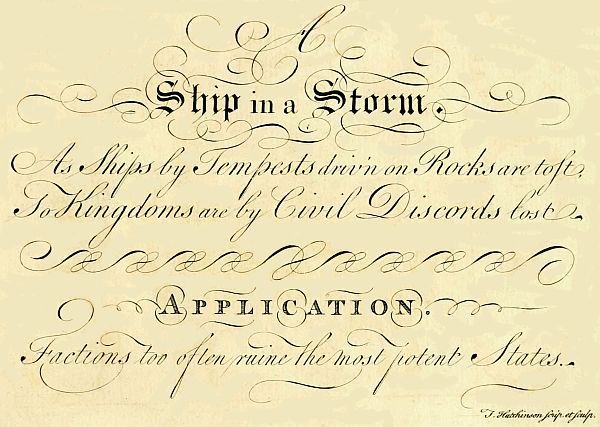 A
Ship in a Storm.
As Ships by Tempests driv'n on Rocks are tost,
So Kingdoms are by Civil Discords lost.
APPLICATION.
Factions too often ruine the most potent States.
J. Hutchinson scrip. et sculp.